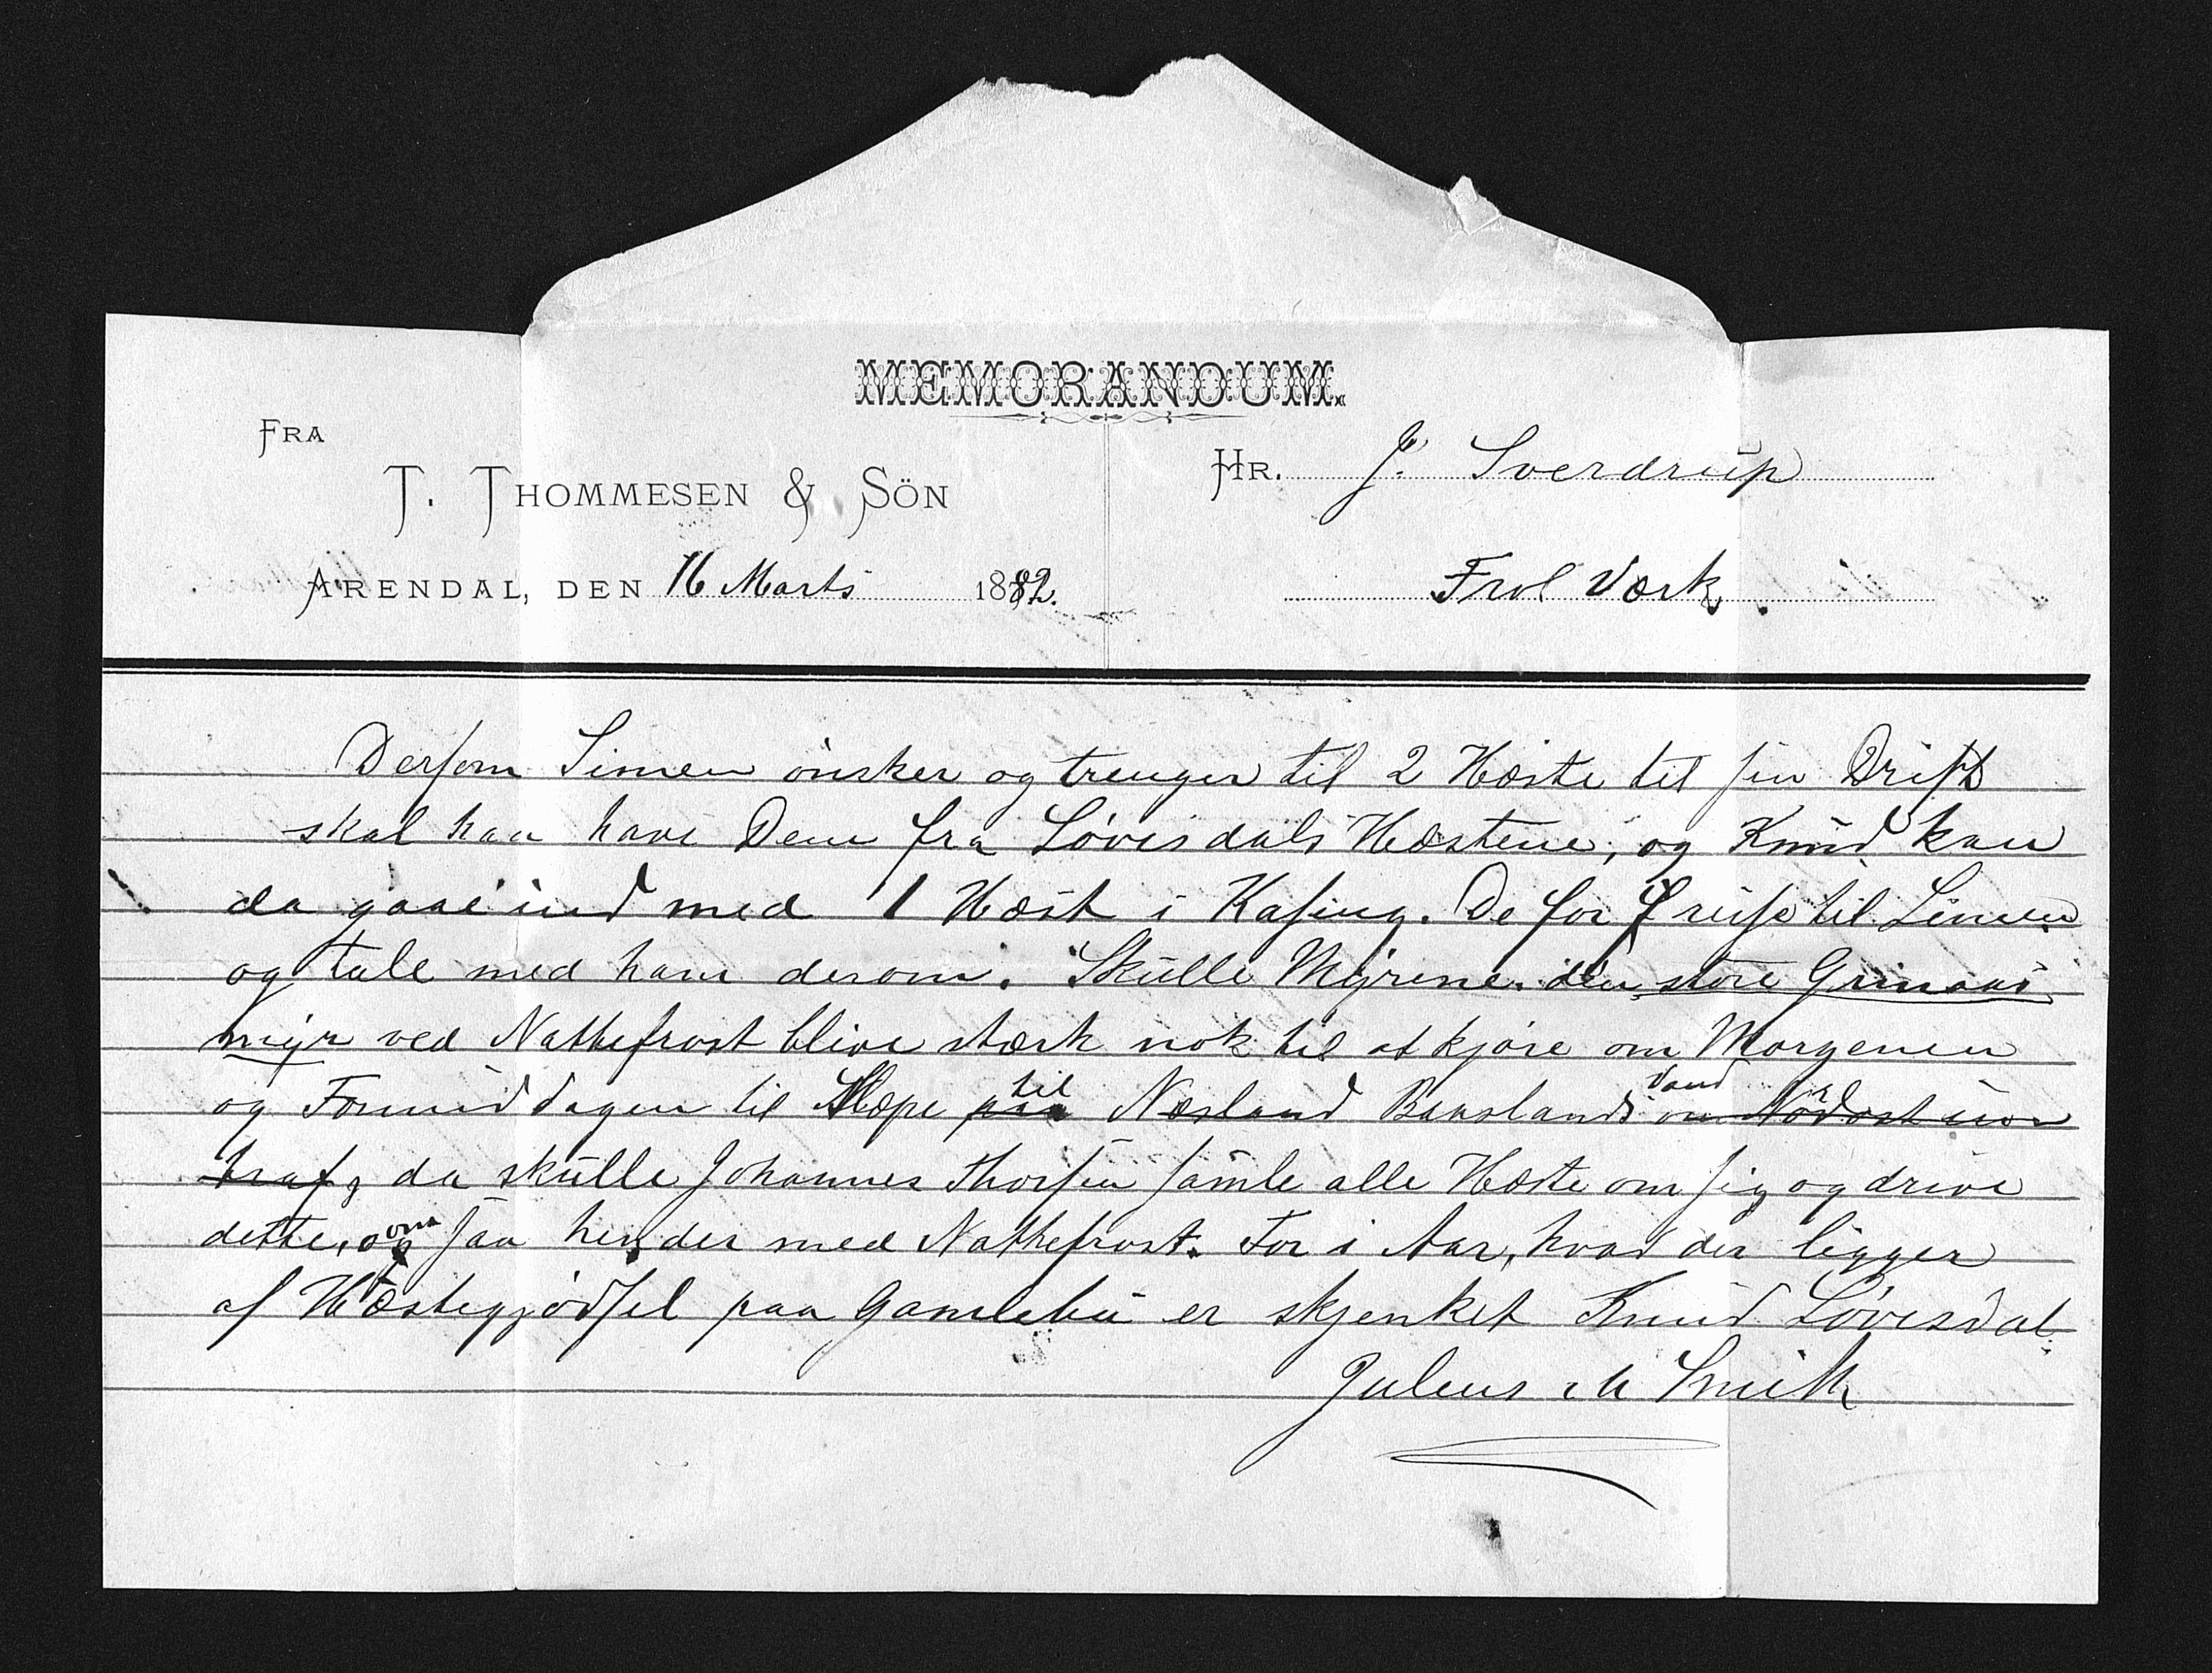 MEMORANDUM.
FRA
T. THOMMESEN & SÖN
ARENDAL, DEN 16 Marts 1882.
HR. J. Sverdrup
Frol Værk
Dersom Simen ønsker og trenger til 2 Hæste til sin Drift
skal han have Dem fra Løvesdals Hæstene, og Knud kan
da gaae ind med 1 Hæst i Kasing. De for reise til Simen
og tale med ham derom. Skulle Myrene den store Grimaas
myr ved Nattefrost blive stærk nok til at kjøre om Morgenen
og Formiddagen til Slæpe paa til Næsland Baaslands vand om Nordost
da skulle Johannes Thorsen samle alle Hæste om sig og drive
dette, og om saa hender med Nattefrost. For i Aar, hvad der ligger
af Hæstegjødsel paa Gamlebu er skjenket Knud Løvesdal.
Julius M Smith